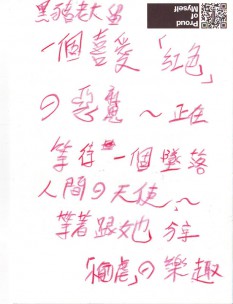 黑豬老大
一個喜愛「紅色」
の惡魔～正在
等待一個墜落
人間の天使～
等著跟她 分享
「虐」の樂趣
Proud
of
Myself